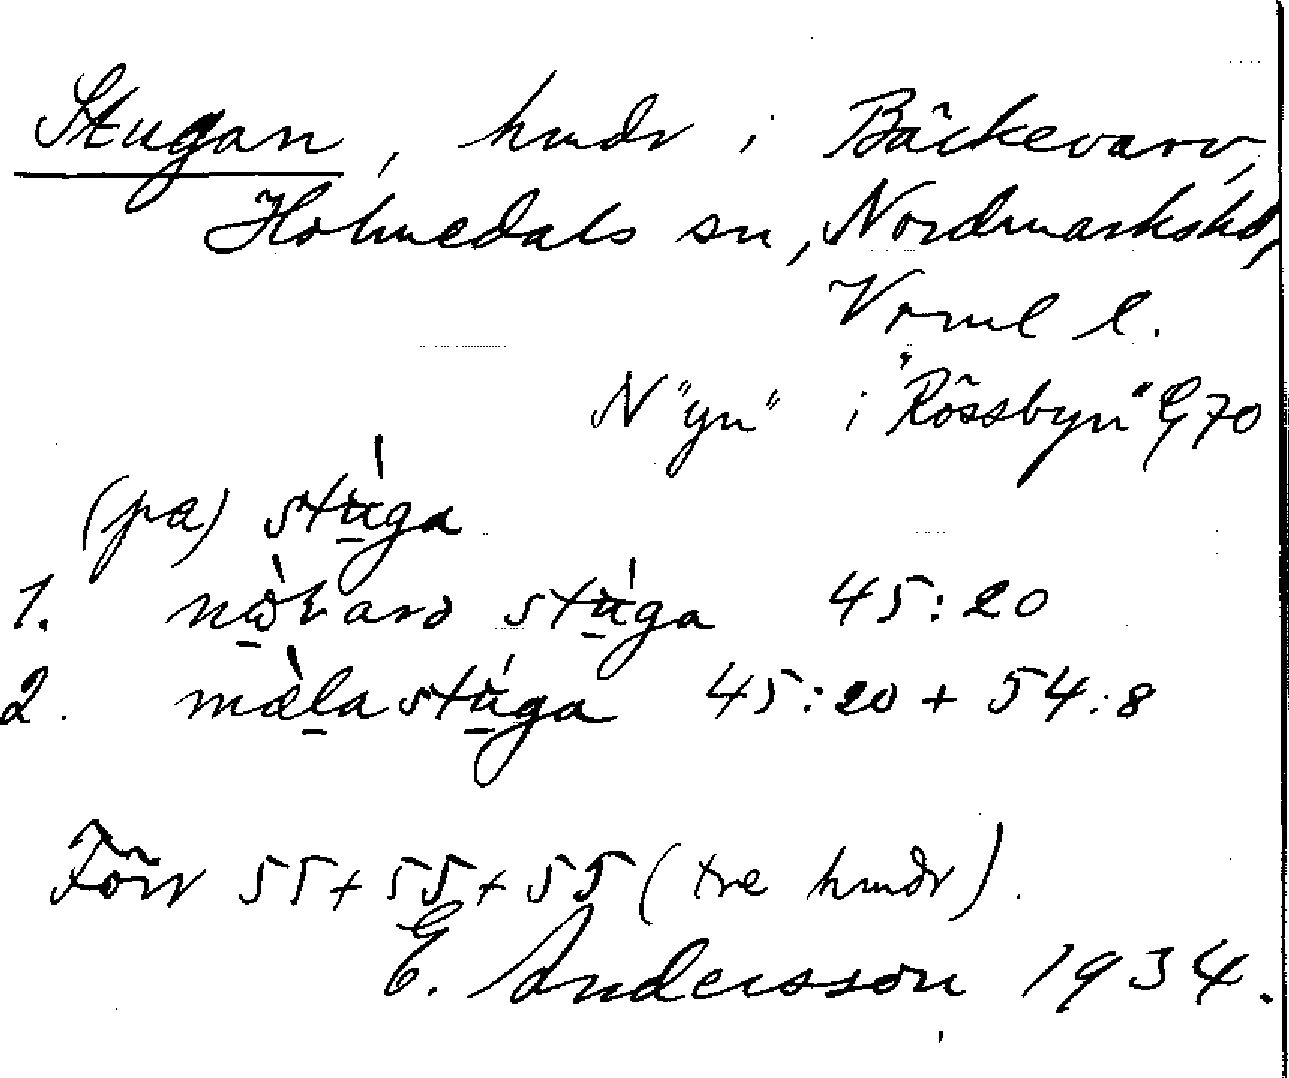 Stugan, hmdr i Bäckevarv,
Holmedals sn, Nordmarkshd,
Vrml l.
N "yn" i "Rössbyn" G70
(pa) stúga
1. stúga 45:20
2. màlastúga 45:20 + 54:8
Förr 55+55+55 (tre hmdr).
E. Andersson 1934.